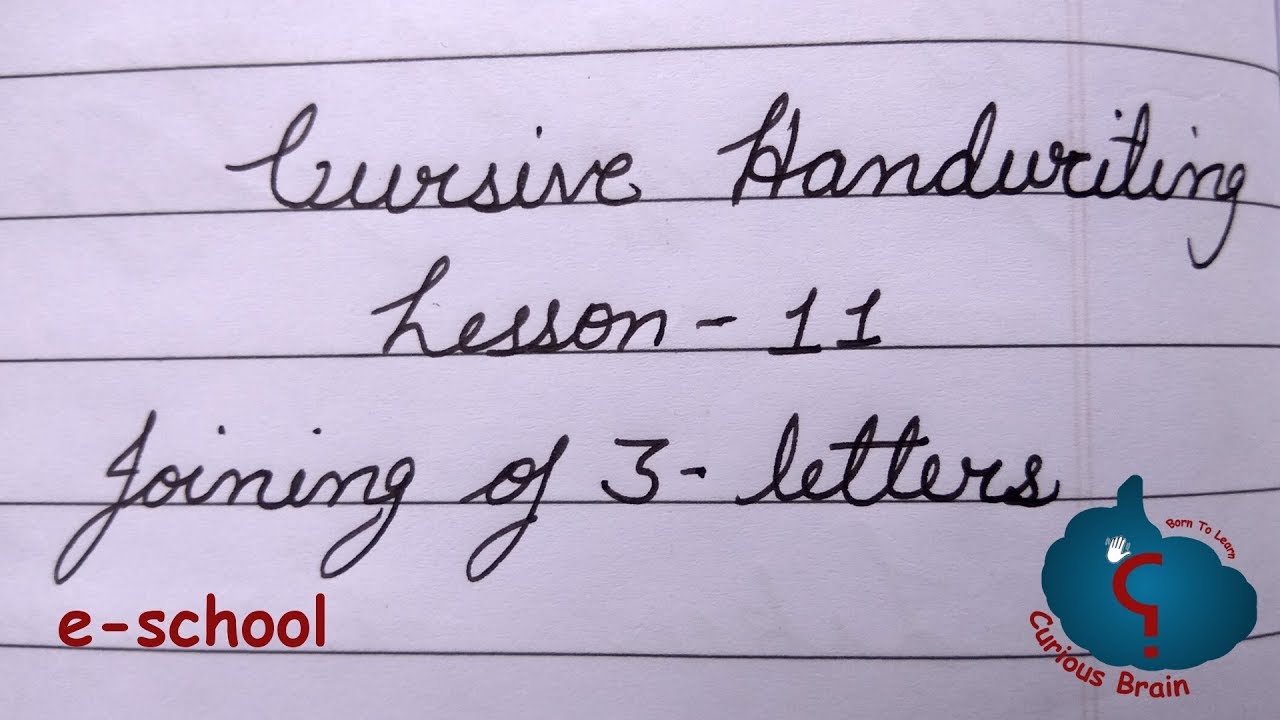 Cursive Handwriting
Lesson - 11
Joining of 3 - letters
e-school
Born To Learn
?
Curious Brain